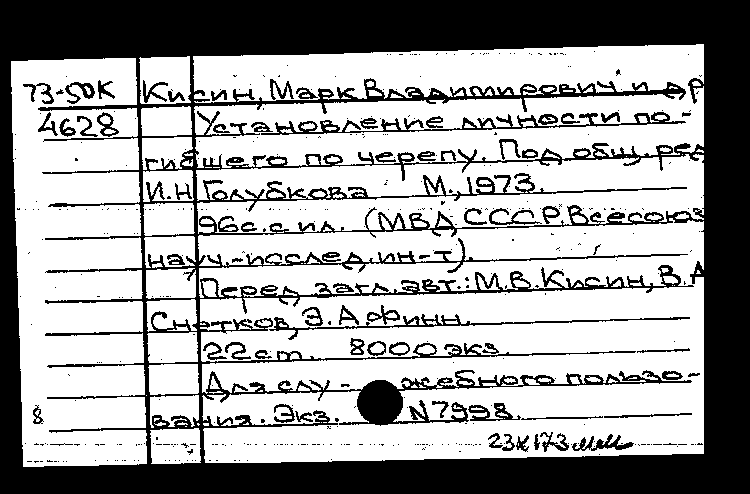 73-5DК Кисин, Марк Владимирович и др
4628 Установление личности по-
гибшего по черепу. Под общ. ред
И.Н Голубкова М., 1973.
96с. с ил. (МВД СССР. Всесоюз
науч.-исслед. ин-т).
Перед загл. авт.: М.В. Кисин, В.А
Снетков, Э.А. Финн.
22 cm. 8000 экз.
Для слу- жебного пользо-
8 вания. Экз. N7998.
23Х173